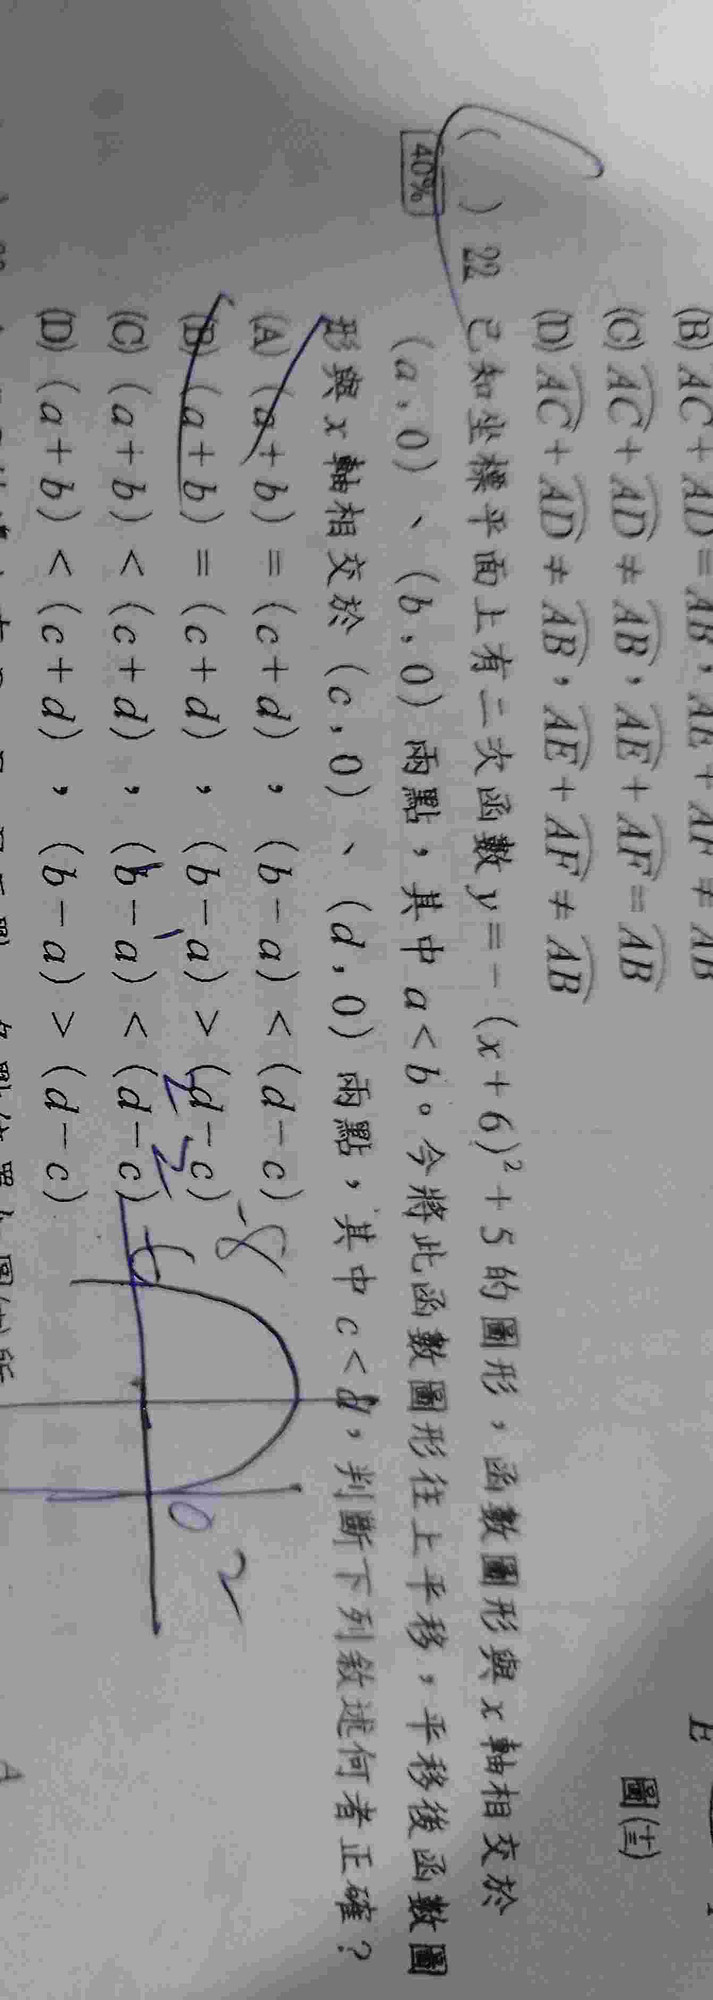 (B) AC + AD = AB，AE + AF ≠ AB
(C) AC + AD ≠ AB，AE + AF = AB
(D) AC + AD ≠ AB，AE + AF ≠ AB
圖(十三)
E
( ) 22 已知坐標平面上有二次函數 y = －(x + 6)² + 5 的圖形，函數圖形與 x 軸相交於
40%
(a，0)、(b，0) 兩點，其中 a < b。今將此函數圖形往上平移，平移後函數圖
形與 x 軸相交於 (c，0)、(d，0) 兩點，其中 c < d，判斷下列敘述何者正確？
(A) (a + b) = (c + d)，(b － a) < (d － c)
(B) (a + b) = (c + d)，(b － a) > (d － c)
(C) (a + b) < (c + d)，(b － a) < (d － c)
(D) (a + b) < (c + d)，(b － a) > (d － c)
-8
0
2
A